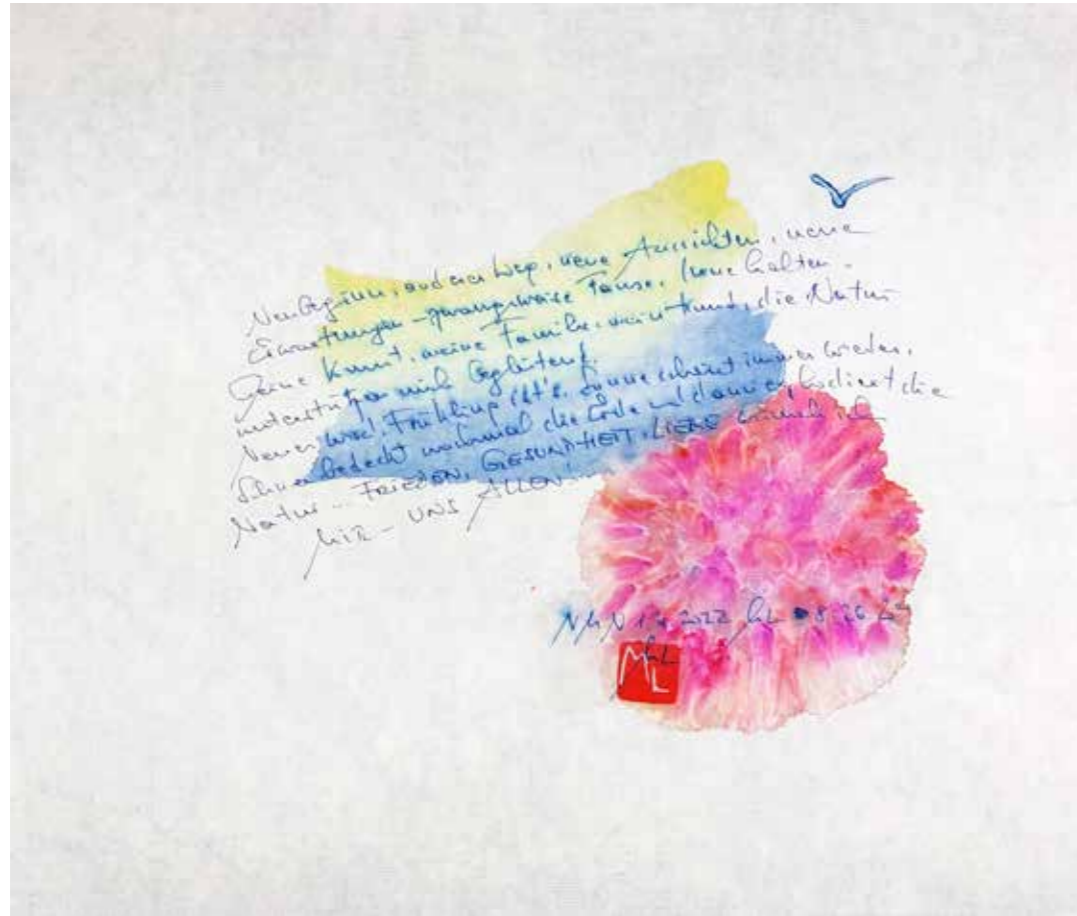 Neubeginn, anderer Weg, neue Aussichten, neue
Erwartungen – zwangsweise Pause. Innehalten.
Meine Kunst, meine Familie, mein Hund, die Natur
unterstützen mich
wird. Frühling ist's. Sonne scheint immer wieder.
Schnee bedeckt nochmal die Erde und dann die
Natur... FRIEDEN, GESUNDHEIT, LIEBE wünsch ich
MIR – UNS ALLEN!
2022
ML